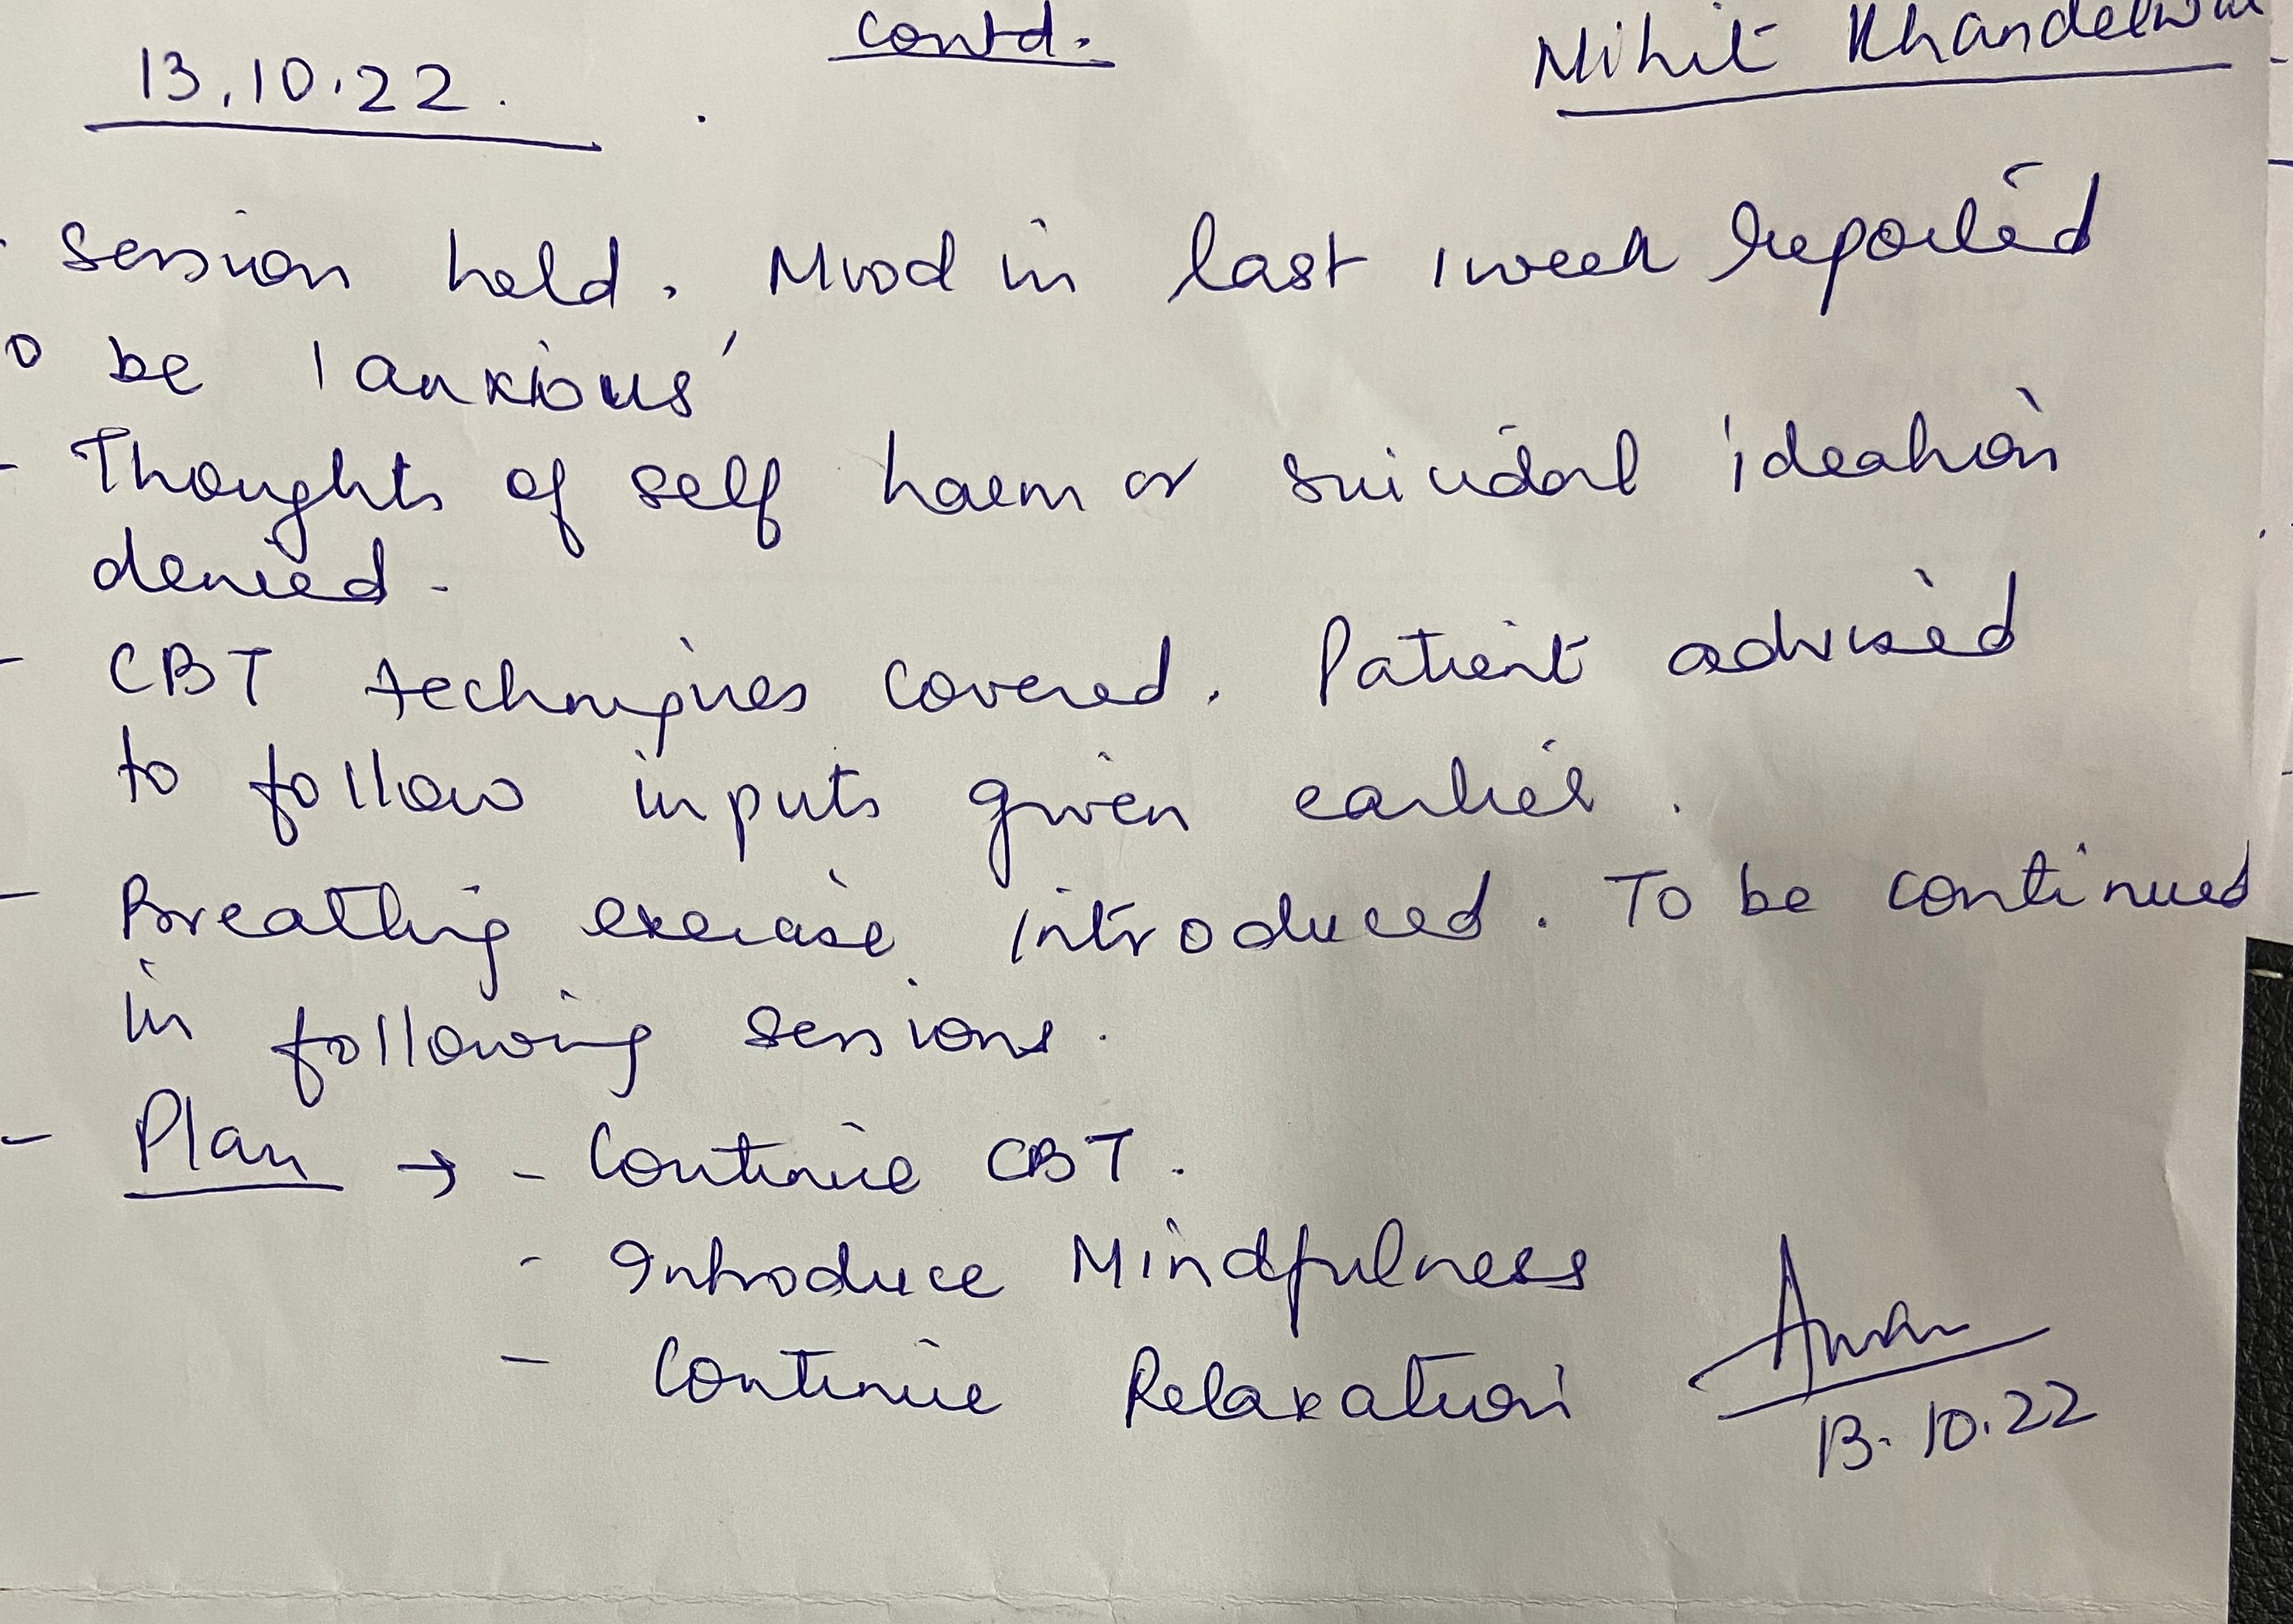 contd.
13.10.22.
Mihit Khandelwal
- Session held. Mood in last 1 week reported
to be 'anxious'
- Thoughts of self harm or suicidal ideation
denied.
- CBT techniques covered. Patient advised
to follow inputs given earlier.
- Breathing exercise introduced. To be continued
in following sessions.
- Plan → - Continue CBT.
- Introduce Mindfulness
- Continue Relaxation
13.10.22